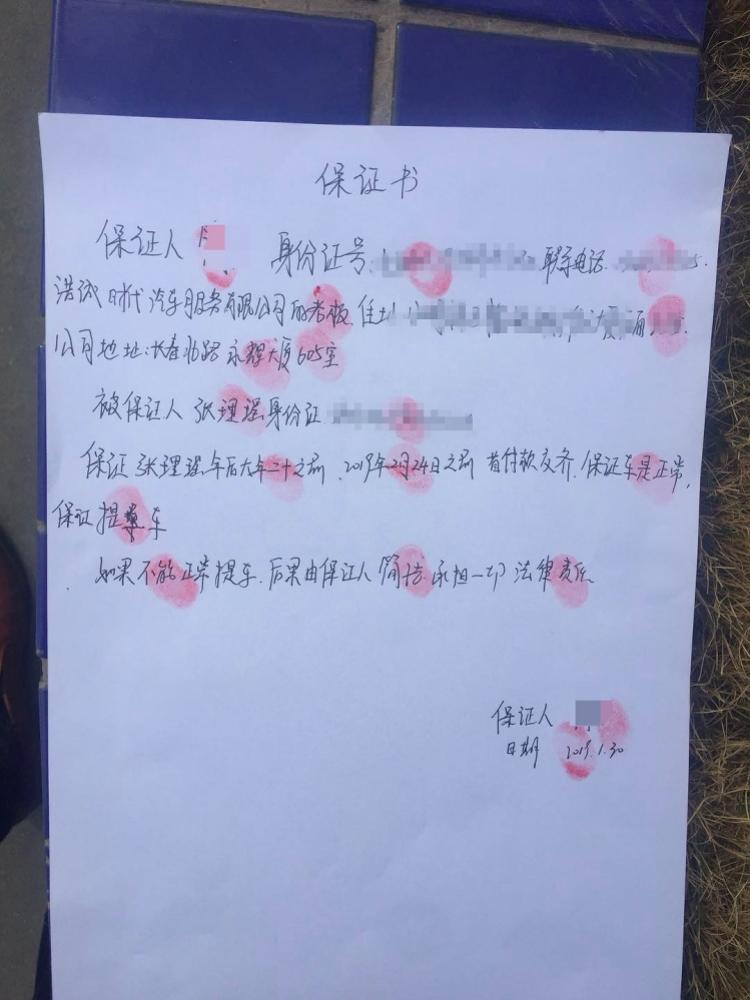 保证书
保证人 身份证号 联系电话
洪诚时代汽车服务有限公司的老板 住址
公司地址:长春北路永辉大厦605室
被保证人 张理强身份证
保证张理强年后大年二十之前.2019年2月24日之前 首付款交齐.保证车是正常,
保证提车
如果不能正常提车.后果由保证人 承担一切 法律责任
保证人
日期 2019.1.30